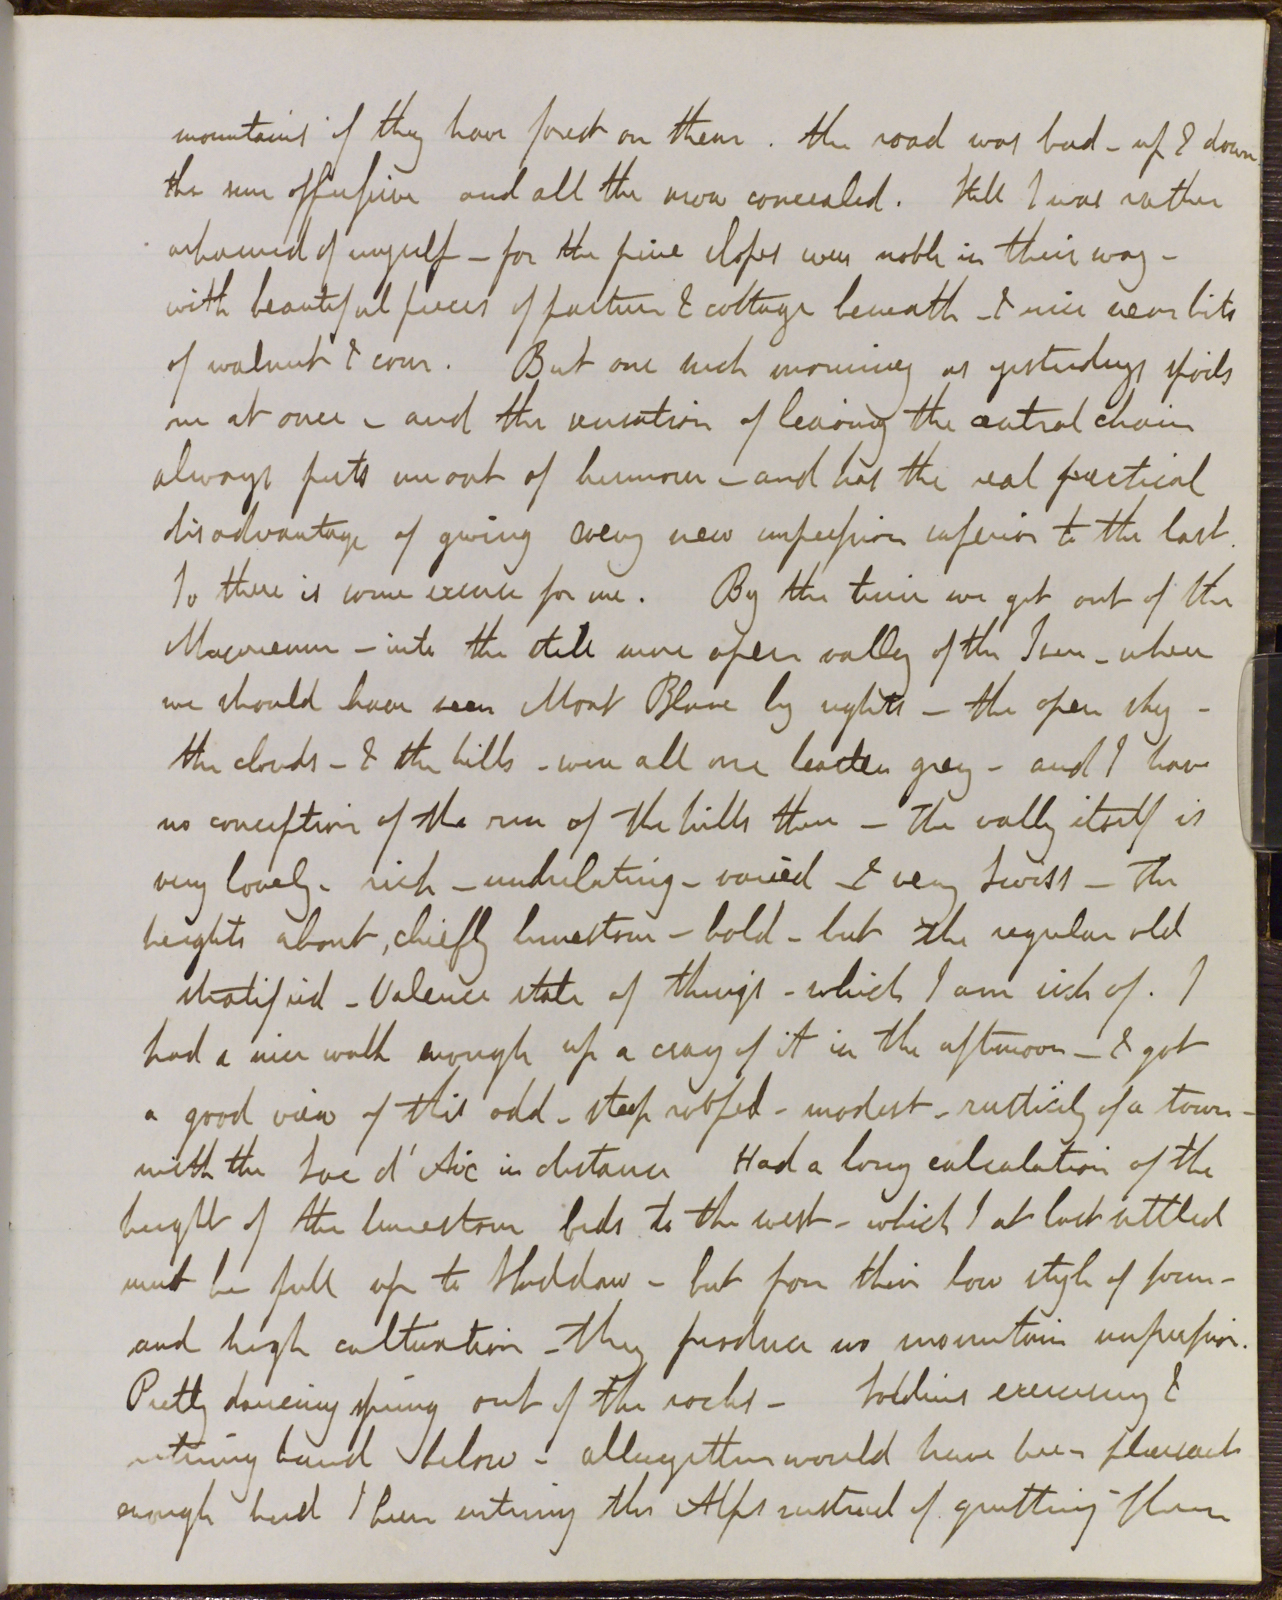 mountains if they have forest on them. the road was bad - up & down
the sun offensive and all the snow concealed. Still I was rather
ashamed of myself - for the pine slopes were noble in their way -
with beautiful pieces of pasture & cottage beneath - & nice near bits
of walnut & corn. But one such morning as yesterdays spoils
me at once - and the sensation of leaving the central chain
always puts me out of humour - and has the real practical
disadvantage of giving every new impression inferior to the last.
So there is some excuse for me. By the time we got out of the
- into the still more open valley of the Isere - where
we should have seen Mont Blanc by rights - the open sky -
the clouds - & the hills - were all one leaden grey - and I have
no conception of the run of the hills there - The valley itself is
very lovely - rich - undulating - varied - & very Swiss - The
heights about, chiefly limestone - bold - but the regular old
stratified - Valence state of things - which I am sick of. I
had a nice walk enough up a crag of it in the afternoon - & got
a good view of this odd - steep roofed - modest - of a town -
with the d' in distance Had a long calculation of the
height of the limestone beds to the west - which I at last settled
must be full up to Skiddaw - but from their low style of form -
and high cultivation - they produce no mountain impression.
Pretty dancing spring out of the rocks - Soldiers exercising &
band below - altogether would have been pleasant
enough had I been entering the Alps instead of quitting them